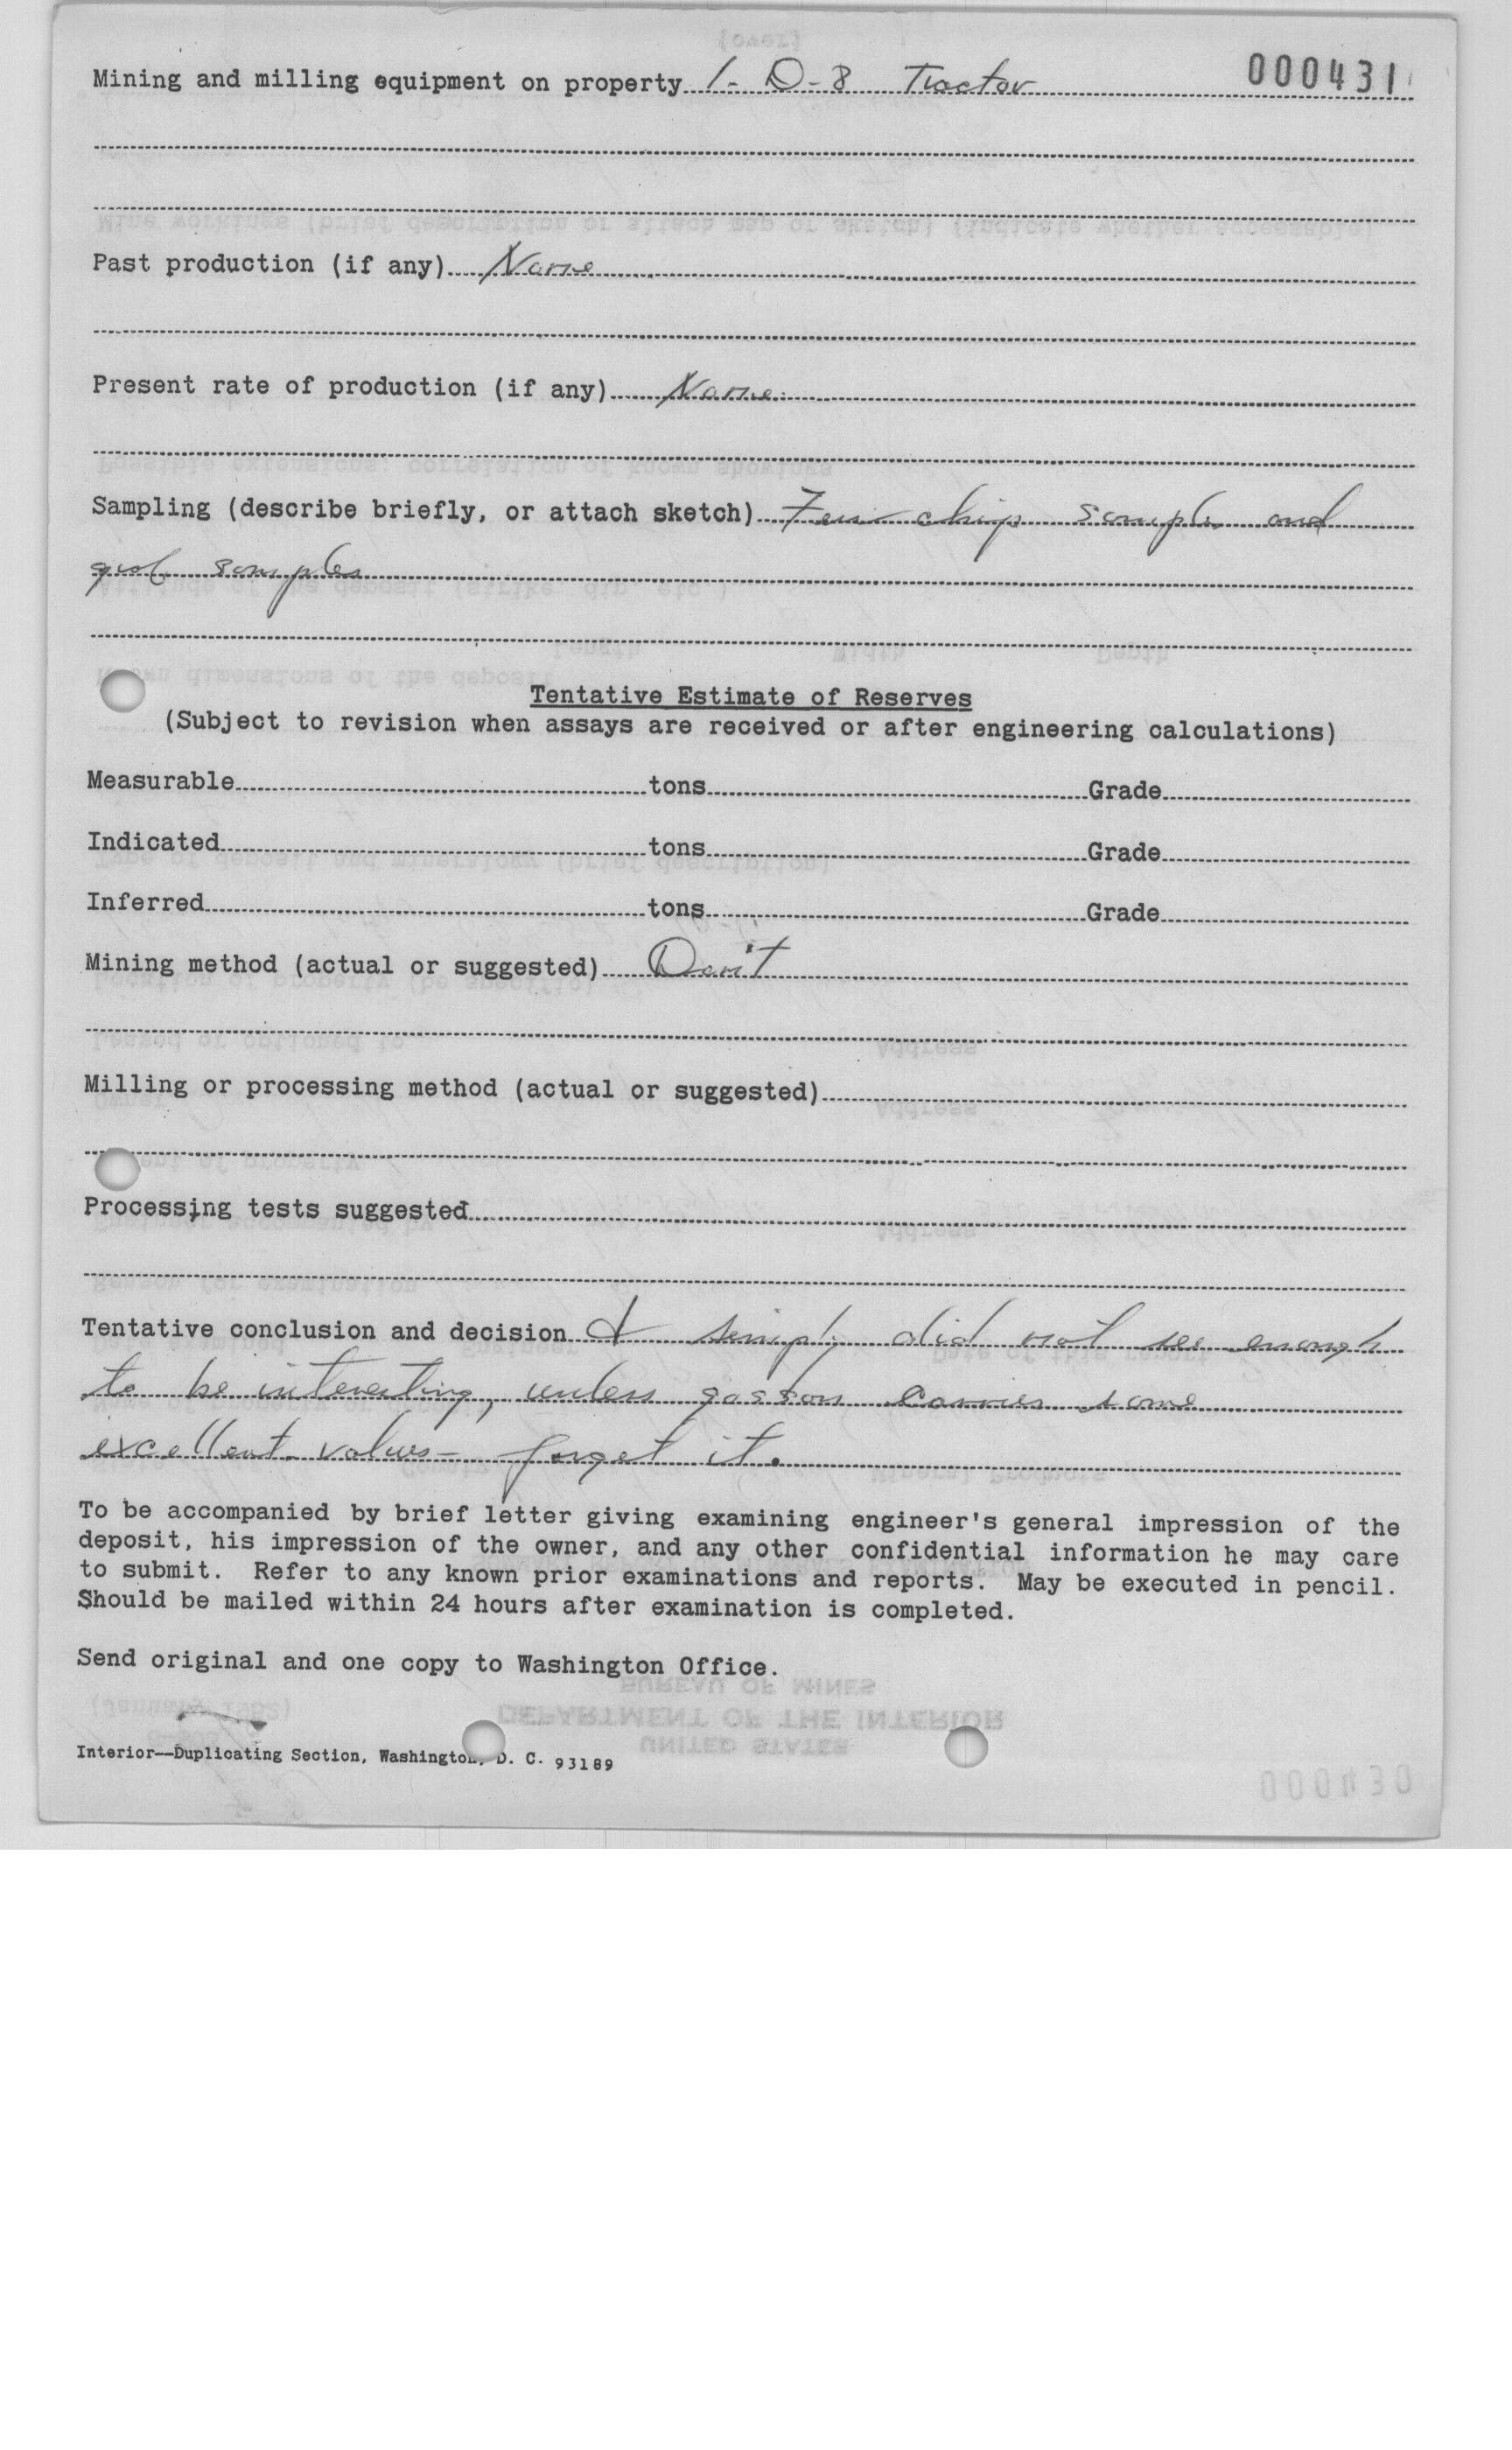 Mining and milling equipment on property 1- D-8 Tractor 000431
Past production (if any) None
Present rate of production (if any) None
Sampling (describe briefly, or attach sketch) Few chip sample and
grab samples
Tentative Estimate of Reserves
(Subject to revision when assays are received or after engineering calculations)
Measurable tons Grade
Indicated tons Grade
Inferred tons Grade
Mining method (actual or suggested) Don't
Milling or processing method (actual or suggested)
Processing tests suggested
Tentative conclusion and decision I simply did not see enough
to be interesting, unless gossan carries some
excellent values- forget it.
To be accompanied by brief letter giving examining engineer's general impression of the
deposit, his impression of the owner, and any other confidential information he may care
to submit. Refer to any known prior examinations and reports. May be executed in pencil.
Should be mailed within 24 hours after examination is completed.
Send original and one copy to Washington Office.
Interior--Duplicating Section, Washington, D. C. 93189